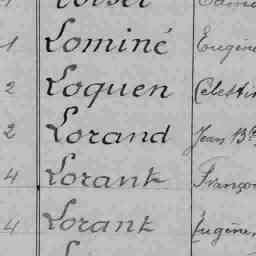 1 Lominé Eugène
2 Loquen Célestin
2 Lorand Jean Bte
4 Lorant François
4 Lorant Eugène